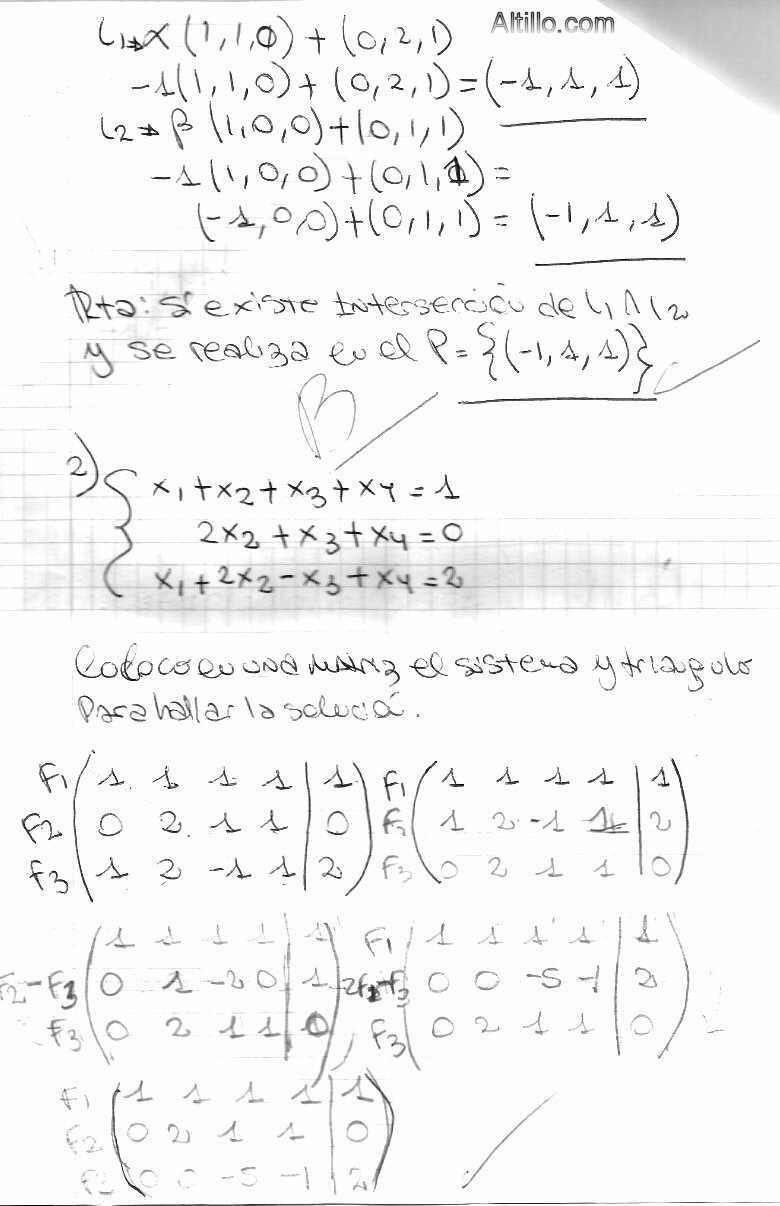 Altillo.com
L1⇒ α (1,1,0) + (0,2,1)
-1(1,1,0) + (0,2,1) = (-1,1,1)
L2⇒ β (1,0,0)+(0,1,1)
-1(1,0,0)+(0,1,1) =
(-1,0,0)+(0,1,1) = (-1,1,1)
Rta: Si existe Intersención de L1∩L2
y se realiza en el P={(-1,1,1)}
B
2) { x1+x2+x3+x4=1
2x2+x3+x4=0
x1+2x2-x3+x4=2
Coloco en una matriz el sistema y triangulo
Para hallar la soluciá.
F1 ( 1 1 1 1 | 1 ) F1 ( 1 1 1 1 | 1 )
F2 ( 0 2 1 1 | 0 ) ( 1 2 -1 1 | 2 )
F3 ( 1 2 -1 1 | 2 ) F3 ( 0 2 1 1 | 0 )
( 1 1 1 1 | 1 ) F1 ( 1 1 1 1 | 1 )
F2-F3 ( 0 1 -2 0 | 1 ) ( 0 0 -5 -1 | 2 )
F3 ( 0 2 1 1 | 0 ) F3 ( 0 2 1 1 | 0 )
F1 ( 1 1 1 1 | 1 )
F2 ( 0 2 1 1 | 0 )
( 0 0 -5 -1 | 2 )